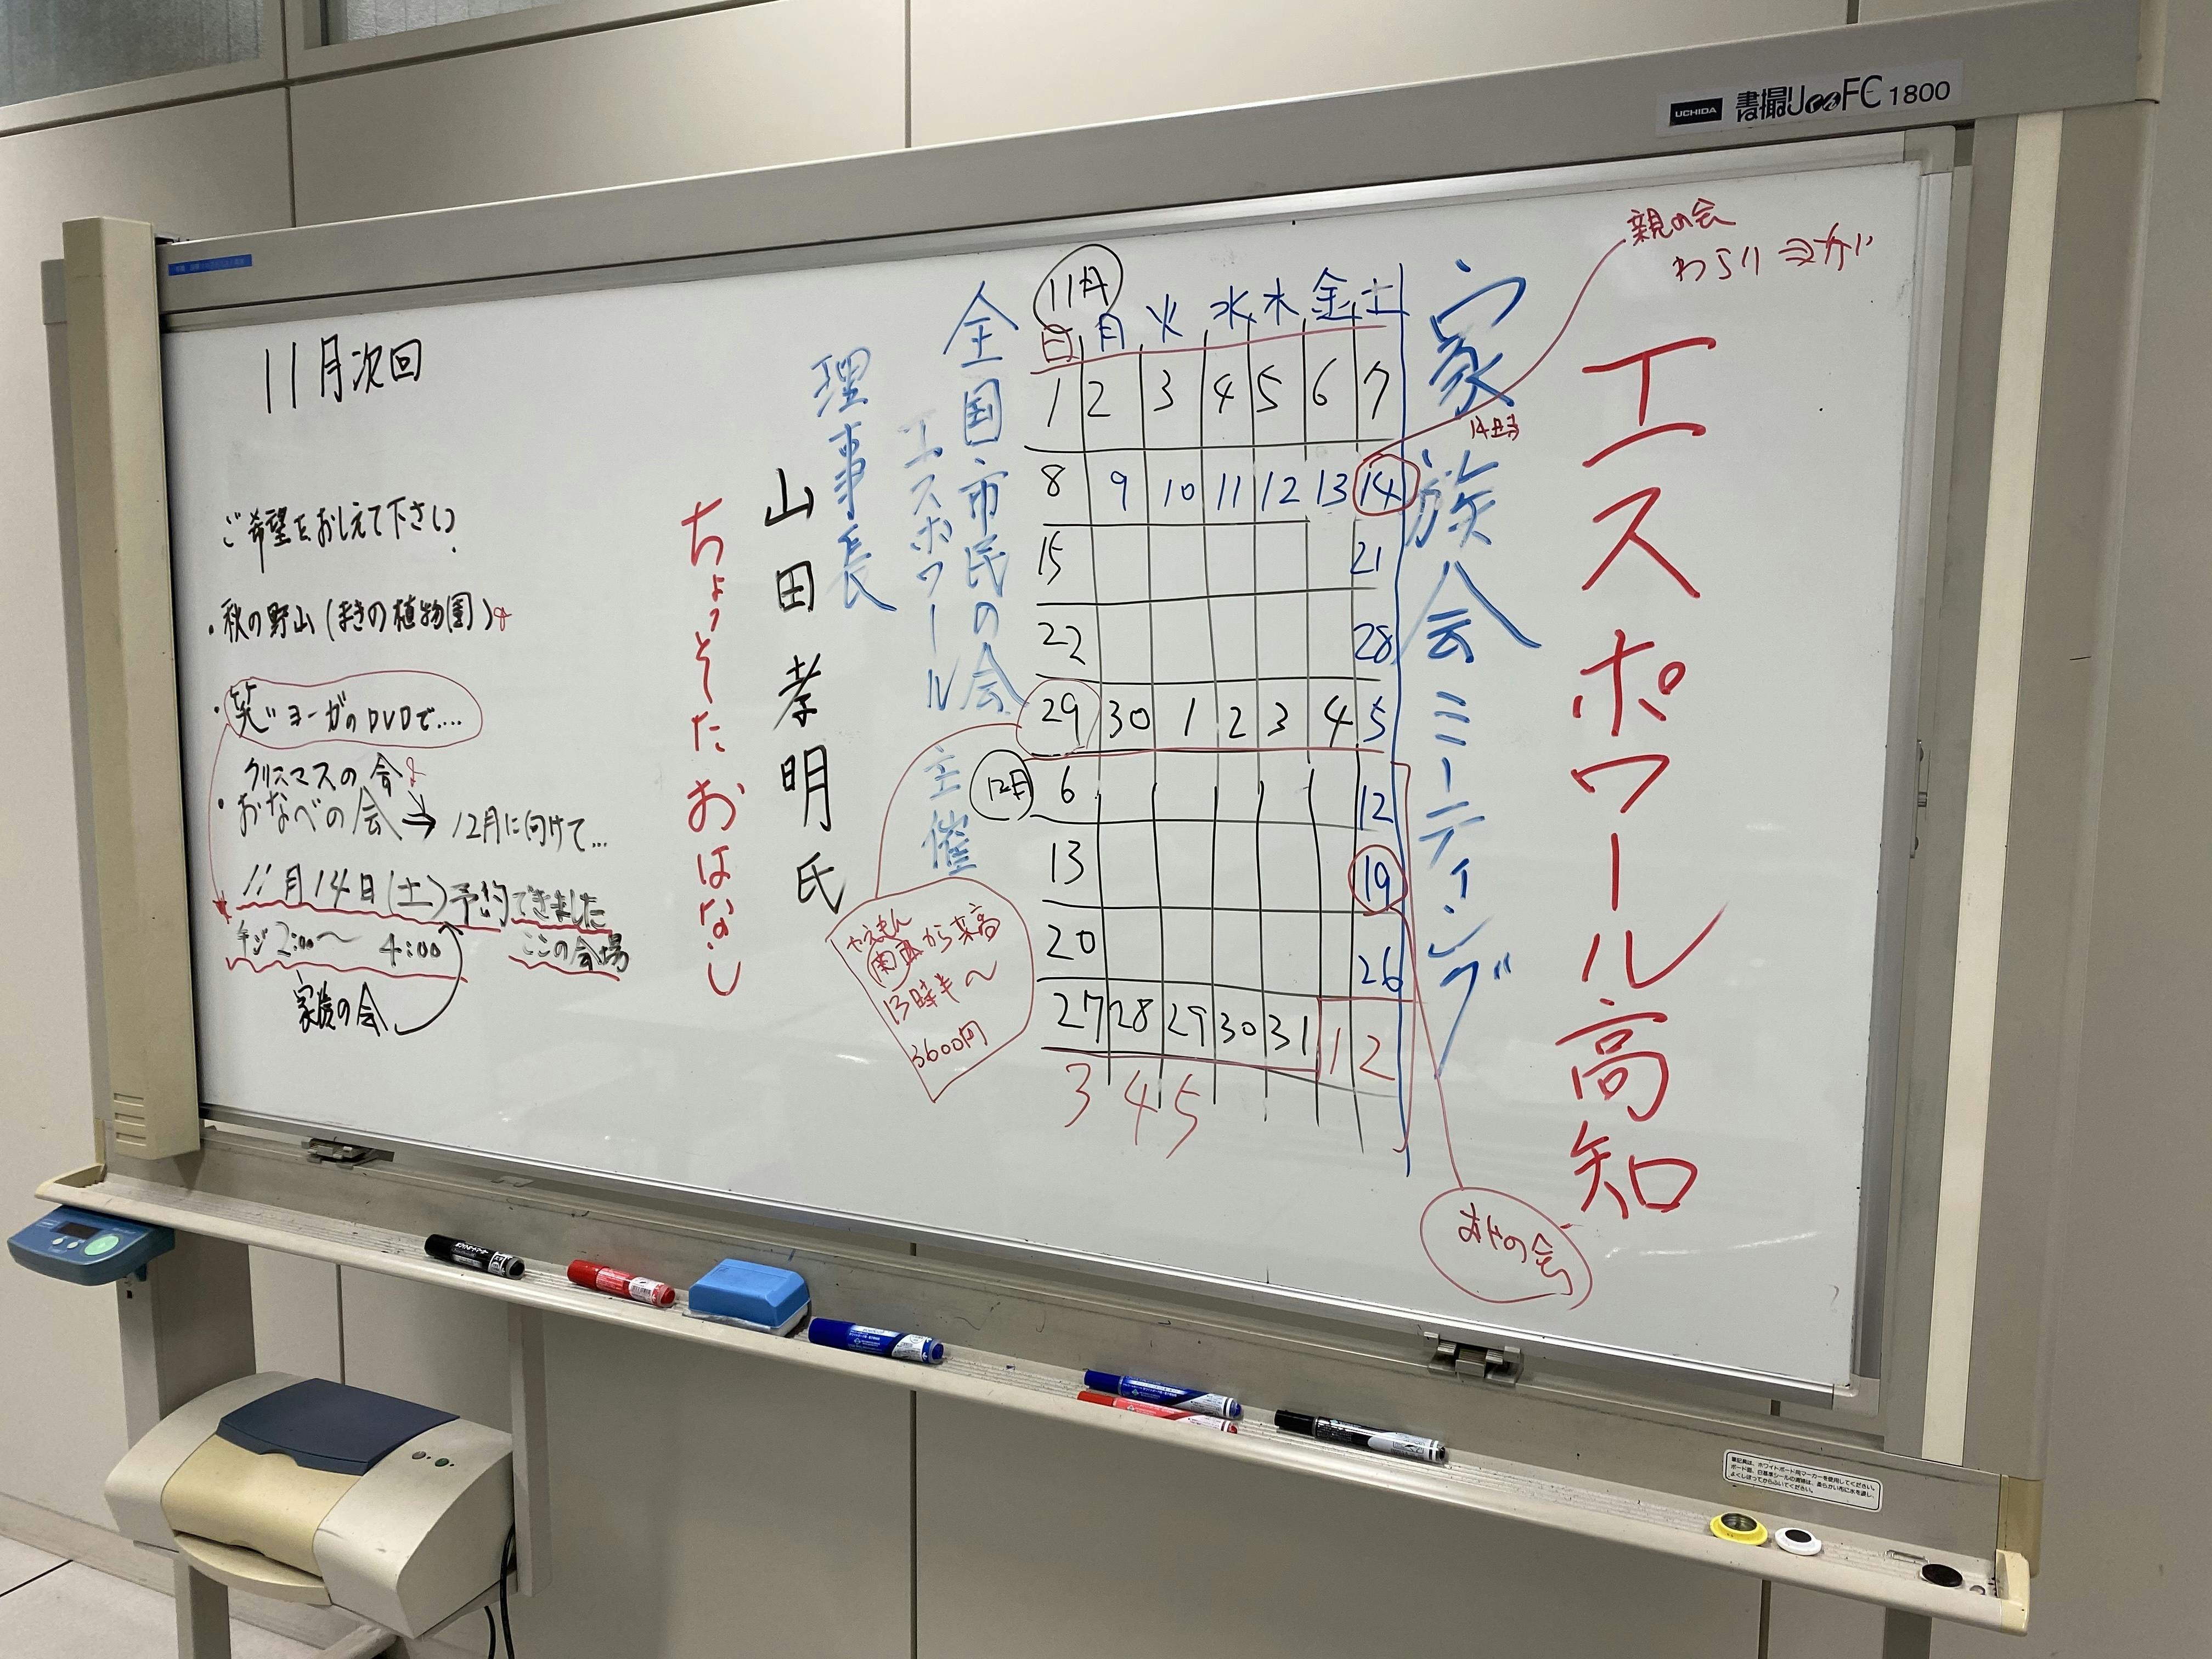 UCHIDA 書撮りくんFC 1800
親の会
わらいヨガ
エスポワール高知
家族会ミーティング
11月
日 月 火 水 木 金 土
1 2 3 4 5 6 7
8 9 10 11 12 13 14
15 21
22 28
29 30 1 2 3 4 5
12月
6 12
13 19
20 26
27 28 29 30 31 1 2
3 4 5
おやの会
全国市民の会
エスポワール
主催
理事長
山田孝明氏
ちょっとした おはなし
から来高
13時半〜
3600円
11月次回
ご希望をおしえて下さい.
・秋の野山(まきの植物園)
・笑いヨーガのDVDで....
クリスマスの会
・おなべの会→12月に向けて...
11月14日(土)予約できました
2:00〜4:00 ここの会場
家族の会